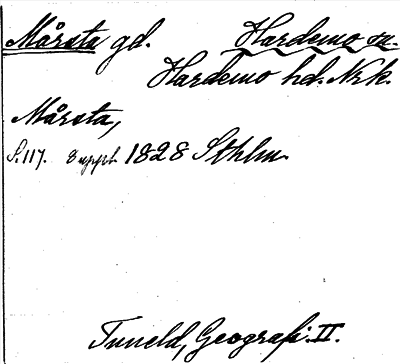 Mårsta gd. Hardemo sn.
Hardemo hd. Nrk.
Mårsta,
S. 117. 8 uppl. 1828 Sthlm.
Tuneld, Geografi. II.